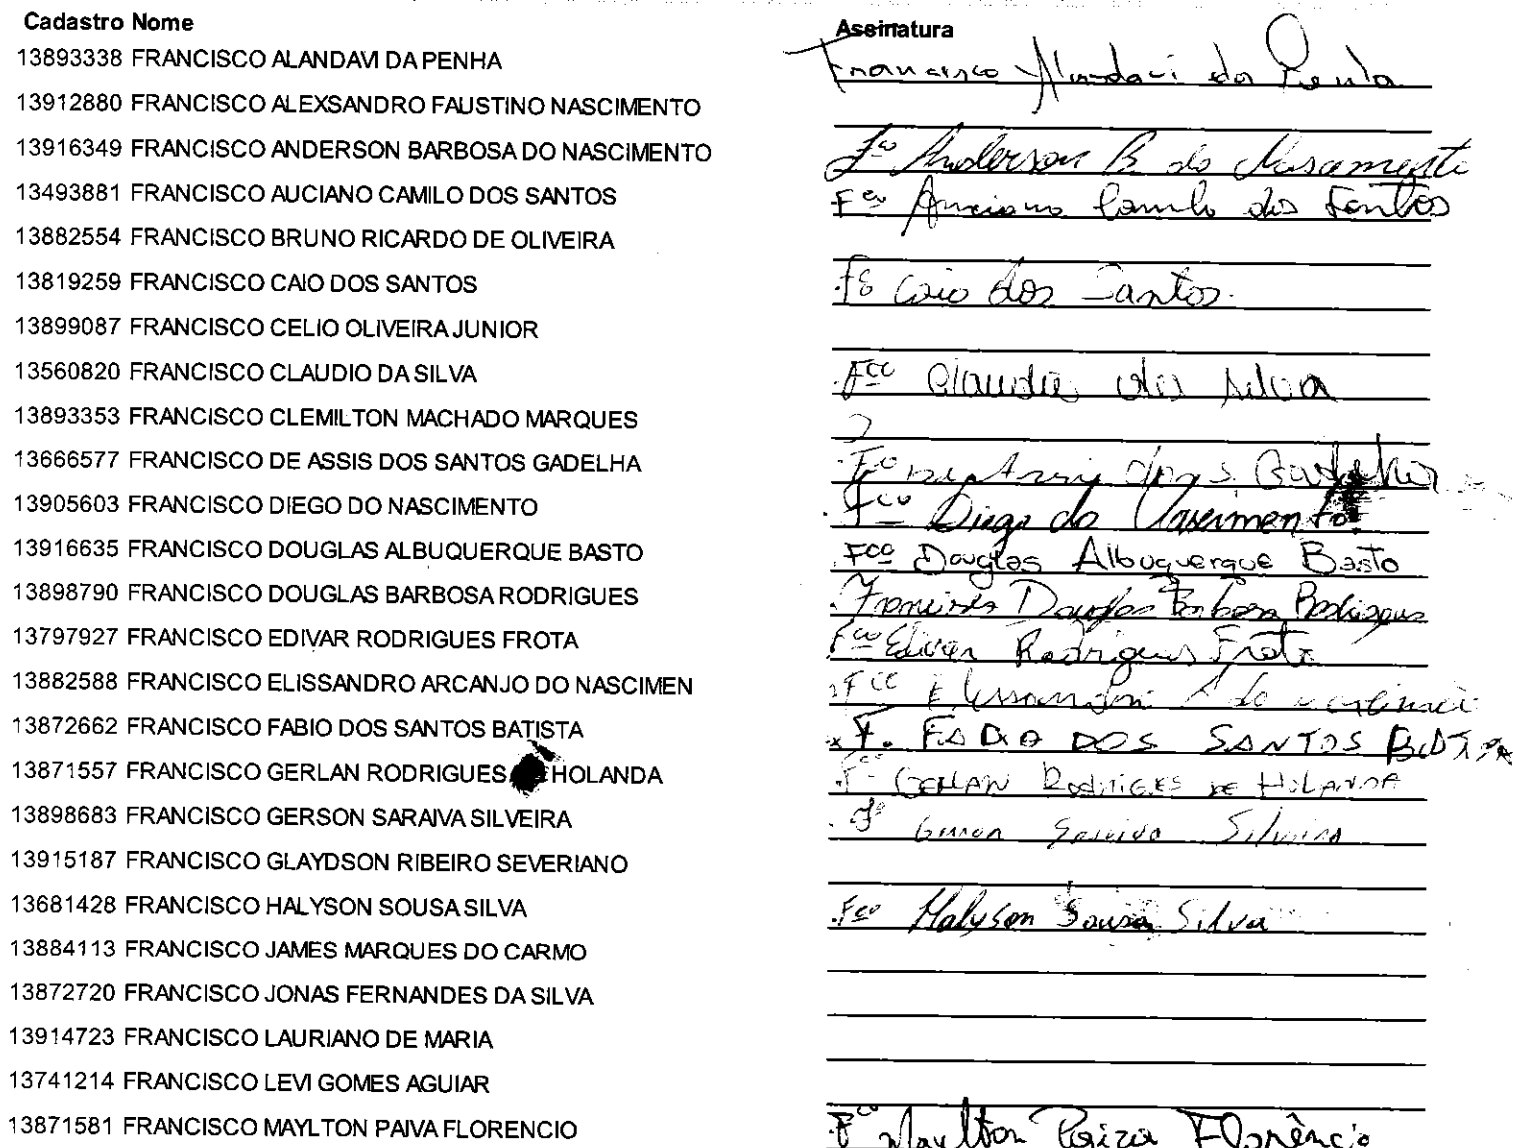 Cadastro Nome Assinatura
13893338 FRANCISCO ALANDAVI DA PENHA Francisco Alandavi da Penha
13912880 FRANCISCO ALEXSANDRO FAUSTINO NASCIMENTO
13916349 FRANCISCO ANDERSON BARBOSA DO NASCIMENTO Fº Anderson B do Nascimento
13493881 FRANCISCO AUCIANO CAMILO DOS SANTOS Fco Auciano Camilo dos Santos
13882554 FRANCISCO BRUNO RICARDO DE OLIVEIRA
13819259 FRANCISCO CAIO DOS SANTOS Caio dos Santos.
13899087 FRANCISCO CELIO OLIVEIRA JUNIOR
13560820 FRANCISCO CLAUDIO DA SILVA Fco Claudio da Silva
13893353 FRANCISCO CLEMILTON MACHADO MARQUES
13666577 FRANCISCO DE ASSIS DOS SANTOS GADELHA Fº de Assis dos S. Gadelha
13905603 FRANCISCO DIEGO DO NASCIMENTO Fco Diego do Nascimento.
13916635 FRANCISCO DOUGLAS ALBUQUERQUE BASTO Fco Douglas Albuquerque Basto
13898790 FRANCISCO DOUGLAS BARBOSA RODRIGUES Francisco Douglas Barbosa Rodrigues
13797927 FRANCISCO EDIVAR RODRIGUES FROTA Fco Edivar Rodrigues Frota
13882588 FRANCISCO ELISSANDRO ARCANJO DO NASCIMEN Fco
13872662 FRANCISCO FABIO DOS SANTOS BATISTA F. FABIO DOS SANTOS BATISTA
13871557 FRANCISCO GERLAN RODRIGUES HOLANDA GERLAN RODRIGUES DE HOLANDA
13898683 FRANCISCO GERSON SARAIVA SILVEIRA Fº Gerson Saraiva Silveira
13915187 FRANCISCO GLAYDSON RIBEIRO SEVERIANO
13681428 FRANCISCO HALYSON SOUSA SILVA Fco Halyson Sousa Silva
13884113 FRANCISCO JAMES MARQUES DO CARMO
13872720 FRANCISCO JONAS FERNANDES DA SILVA
13914723 FRANCISCO LAURIANO DE MARIA
13741214 FRANCISCO LEVI GOMES AGUIAR
13871581 FRANCISCO MAYLTON PAIVA FLORENCIO Fco Maylton Paiva Florêncio